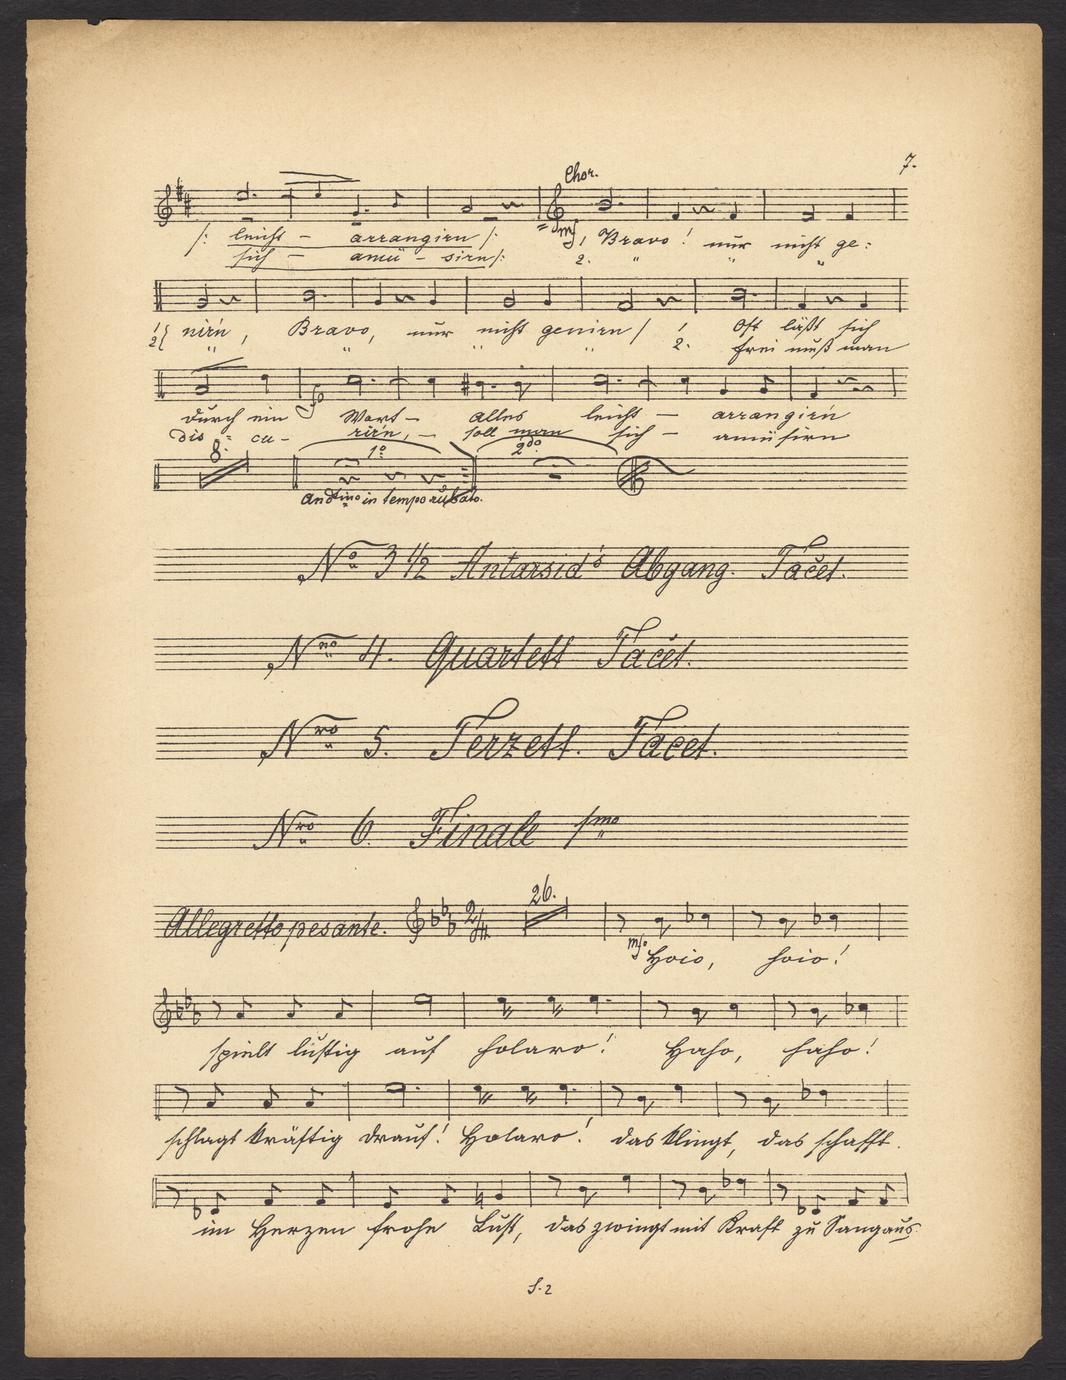 7.
Chor.
/: leicht - arrangirn /: mf 1, Bravo! nur nicht ge:
sich - amü - sirn /: 2. " " "
1 { nirn, Bravo, nur nicht genirn / 1 Oft läßt sich
2 { " " " " " 2. frei muß man
durch ein Wort - alles leicht - arrangirn
dis = cu - rirn, - soll man sich - amüsirn
8. 1º 2do
Andtino in tempo rubato.
No 3 1/2 Antarsid's Abgang. Tacet.
Nro 4. Quartett Tacet.
Nro 5. Terzett. Tacet.
Nro 6. Finale 1mo
26.
Allegretto pesante. 2/4
mf Hoio, hoio!
spielt lustig auf holaro! Haho, haho!
schlagt kräftig drauf! Holaro! das klingt, das schafft.
im Herzen frohe Lust, das zwingt mit Kraft zu Sang aus
S. 2